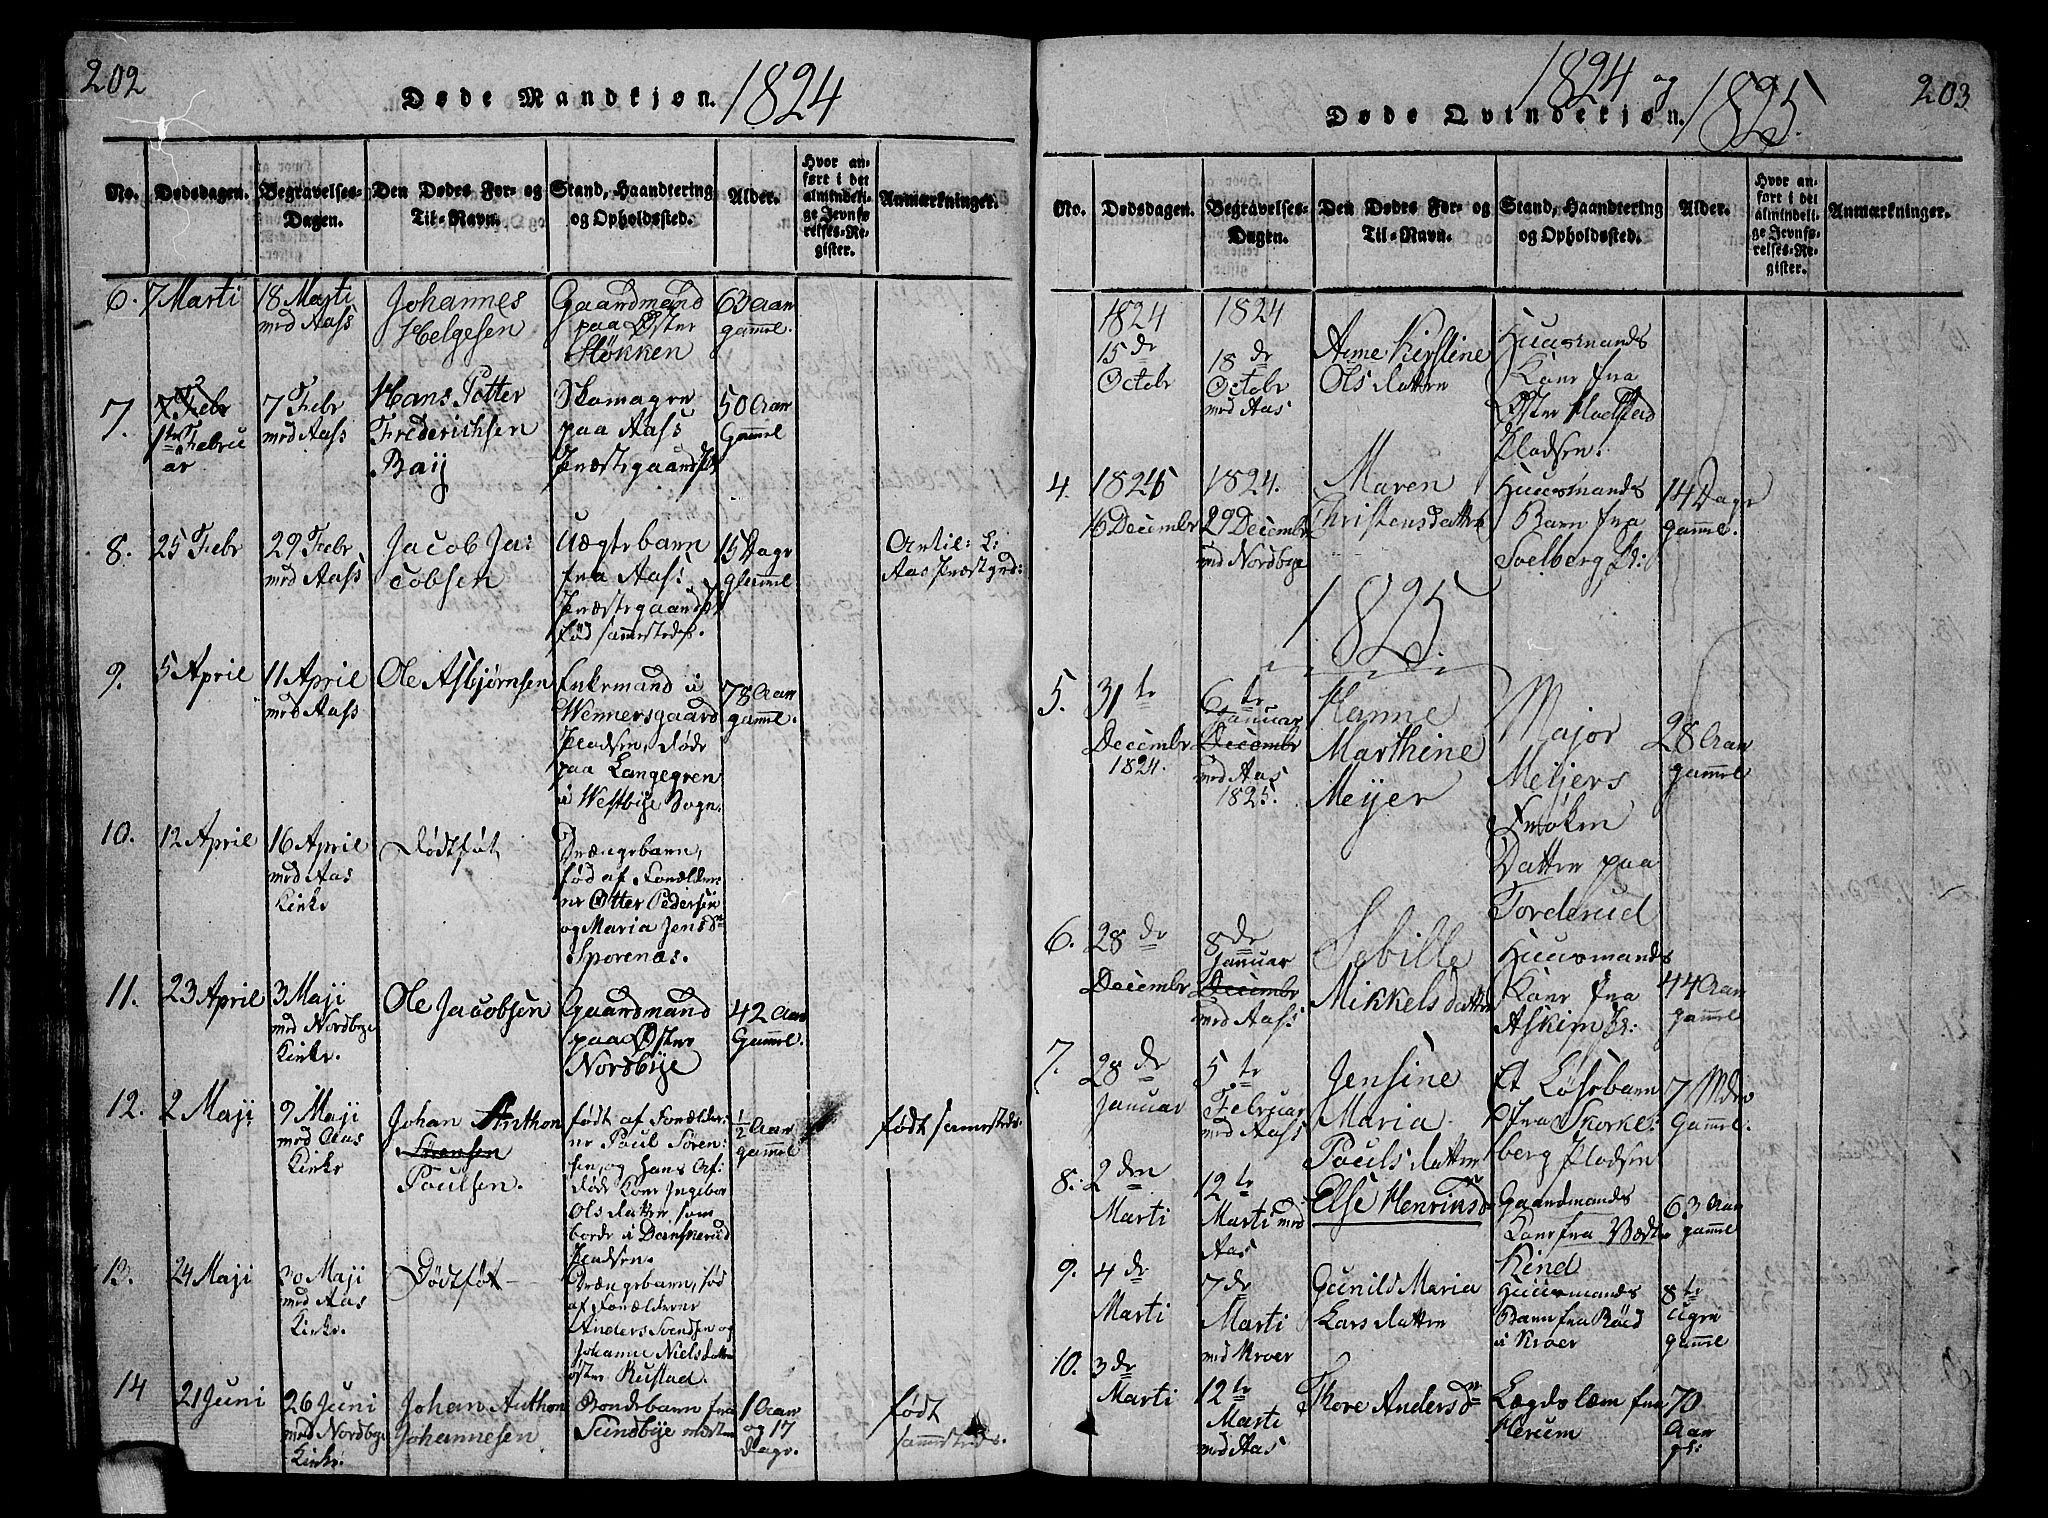 202
Døde Mandkjøn. 1824
No.
Dødsdagen.
Begravelses-
Dagen.
Den Dødes For- og
Til-Navn.
Stand, Haandtering
og Opholdssted.
Alder.
Hvor an-
ført i det
almindeli-
ge Jevnfø-
relses-Re-
gister.
Anmærkninger.
6.
7 Marti
18 Marti
med Aass
Johannes
Helgesen
Gaardmand
paa Øster
Støkken
63 Aar
gammel.
7.
7 Febr
1ste Febru
ar
7 Febr
med Aass
Hans Petter
Frederichsen
Baij
Skomager
paa Aass
Præstegaards
50 Aar
Gammel
8.
25 Febr
29 Febr
med Aass
Jacob Ja:
cobsen
Uægte barn
fra Aass
Præstegaard
fød sammesteds.
15 Dage
glamel
Aas Præstgrd:
9.
5 April
11 April
med Aass
Ole Asbjørnsen
Enkemand i
Wennersgaard
Pladsen, døde
paa Langegren
i Westbye Sogn.
78 Aar
gammel.
10.
12 April
16 April
med Aas
Kirke
Dødtføt
Drængebarn,
fød af Forælder:
ne Otter Pedersen
og Maria Jensdr
Sporenas.
11.
23 April
3 Maji
med Nordbye
Kirke.
Ole Jacobsen
Gaardmand
paa Øster
Nordbye
42 Aar
Gammel.
12.
2 Maji
9 Maji
med Aas
Kirke
Johan Anthon
Sørensen
Poulsen.
født af Forælder:
ne Poul Søren:
sen, og hans Af:
døde Kone Ingebor
Olsdatter som
bode i Danskerud
Pladsen.
1/2 Aar
gammel
født sammesteds.
13.
24 Maji
30 Maji
med Aas
Kirke.
Dødtføt
Drængebarn, fød
af Forælderne
Anders Svendsen og
Johanne Nielsdatter
øster Rustad.
14
21 Juni
26 Juni
med Nordbye
Kirke.
Johan Anthon
Johannesen
Bondebarn fra
Sundbye
1 Aar
og 17
dage.
født
sammesteds.
1824 og 1825.
203
Døde Qvindekjøn.
No.
Dødsdagen.
Begravelses-
Dagen.
Den Dødes For- og
Til-Navn.
Stand, Haandtering
og Opholdssted.
Alder.
Hvor an-
ført i det
almindeli-
ge Jevnfø-
relses-Re-
gister.
Anmærkninger.
1824
15 de
Octobr
1824
18 de
Octobr
med Aas
Anne Kirstine
Olsdatter
Huusmands
Kone fra
Øster
Pladsen.
4.
1824
16 Decembr
1824.
29 Decembr
med Nordbye
Maren
Christensdatter
Huusmands
Barn fra
Solberg
14 Dage
gammel.
1825.
5.
31 te
Decembr
1824.
6 te
Januar
Decembr
med Aas
1825.
Hanne
Marthine
Meijer
Major
Meijers
Frøken
Datter paa
Torderud
28 Aar
gammel
6.
28 de
Decembr
8 de
Januar
Decembr
med Aass
Sebille
Mikkelsdatter
Huusmands
Kone fra
Askim
44 Aar
gammel
7.
28 de
Januar
5 te
Februar
med Aass
Jensine
Maria
Poulsdatter
Et Løsebarn
fra Skorke:
berg Pladsen
7 Mdr
Gammel.
8.
2 den
Marti
12 te
Marti med
Aas
Else Henriksdr
Gaardmands
Kone fra Vest
Rend
63 Aar
gammel
9.
4 de
Marti
7 de
Marti
med Kroer
Gunild Maria
Larsdatter
Huusmands
Barn fra Røed
i Kroer
8 te
uger
gammel
10.
3 de
Marti
12 te
Marti
med Aas
Thore Andersdr
Lægdslæm fra
Herum
70
Aar
gl: